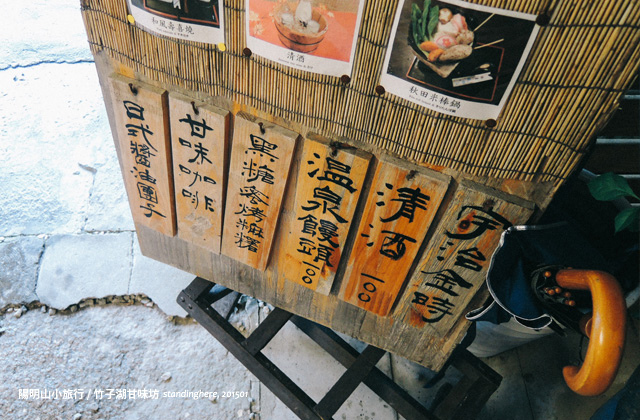 和風壽喜燒
清酒
秋田米棒鍋
日式醬油團子
甘味咖啡
黑糖蜜烤麻糬
溫泉饅頭 100
清酒 100
宇治金時
陽明山小旅行 / 竹子湖甘味坊 standinghere, 201501